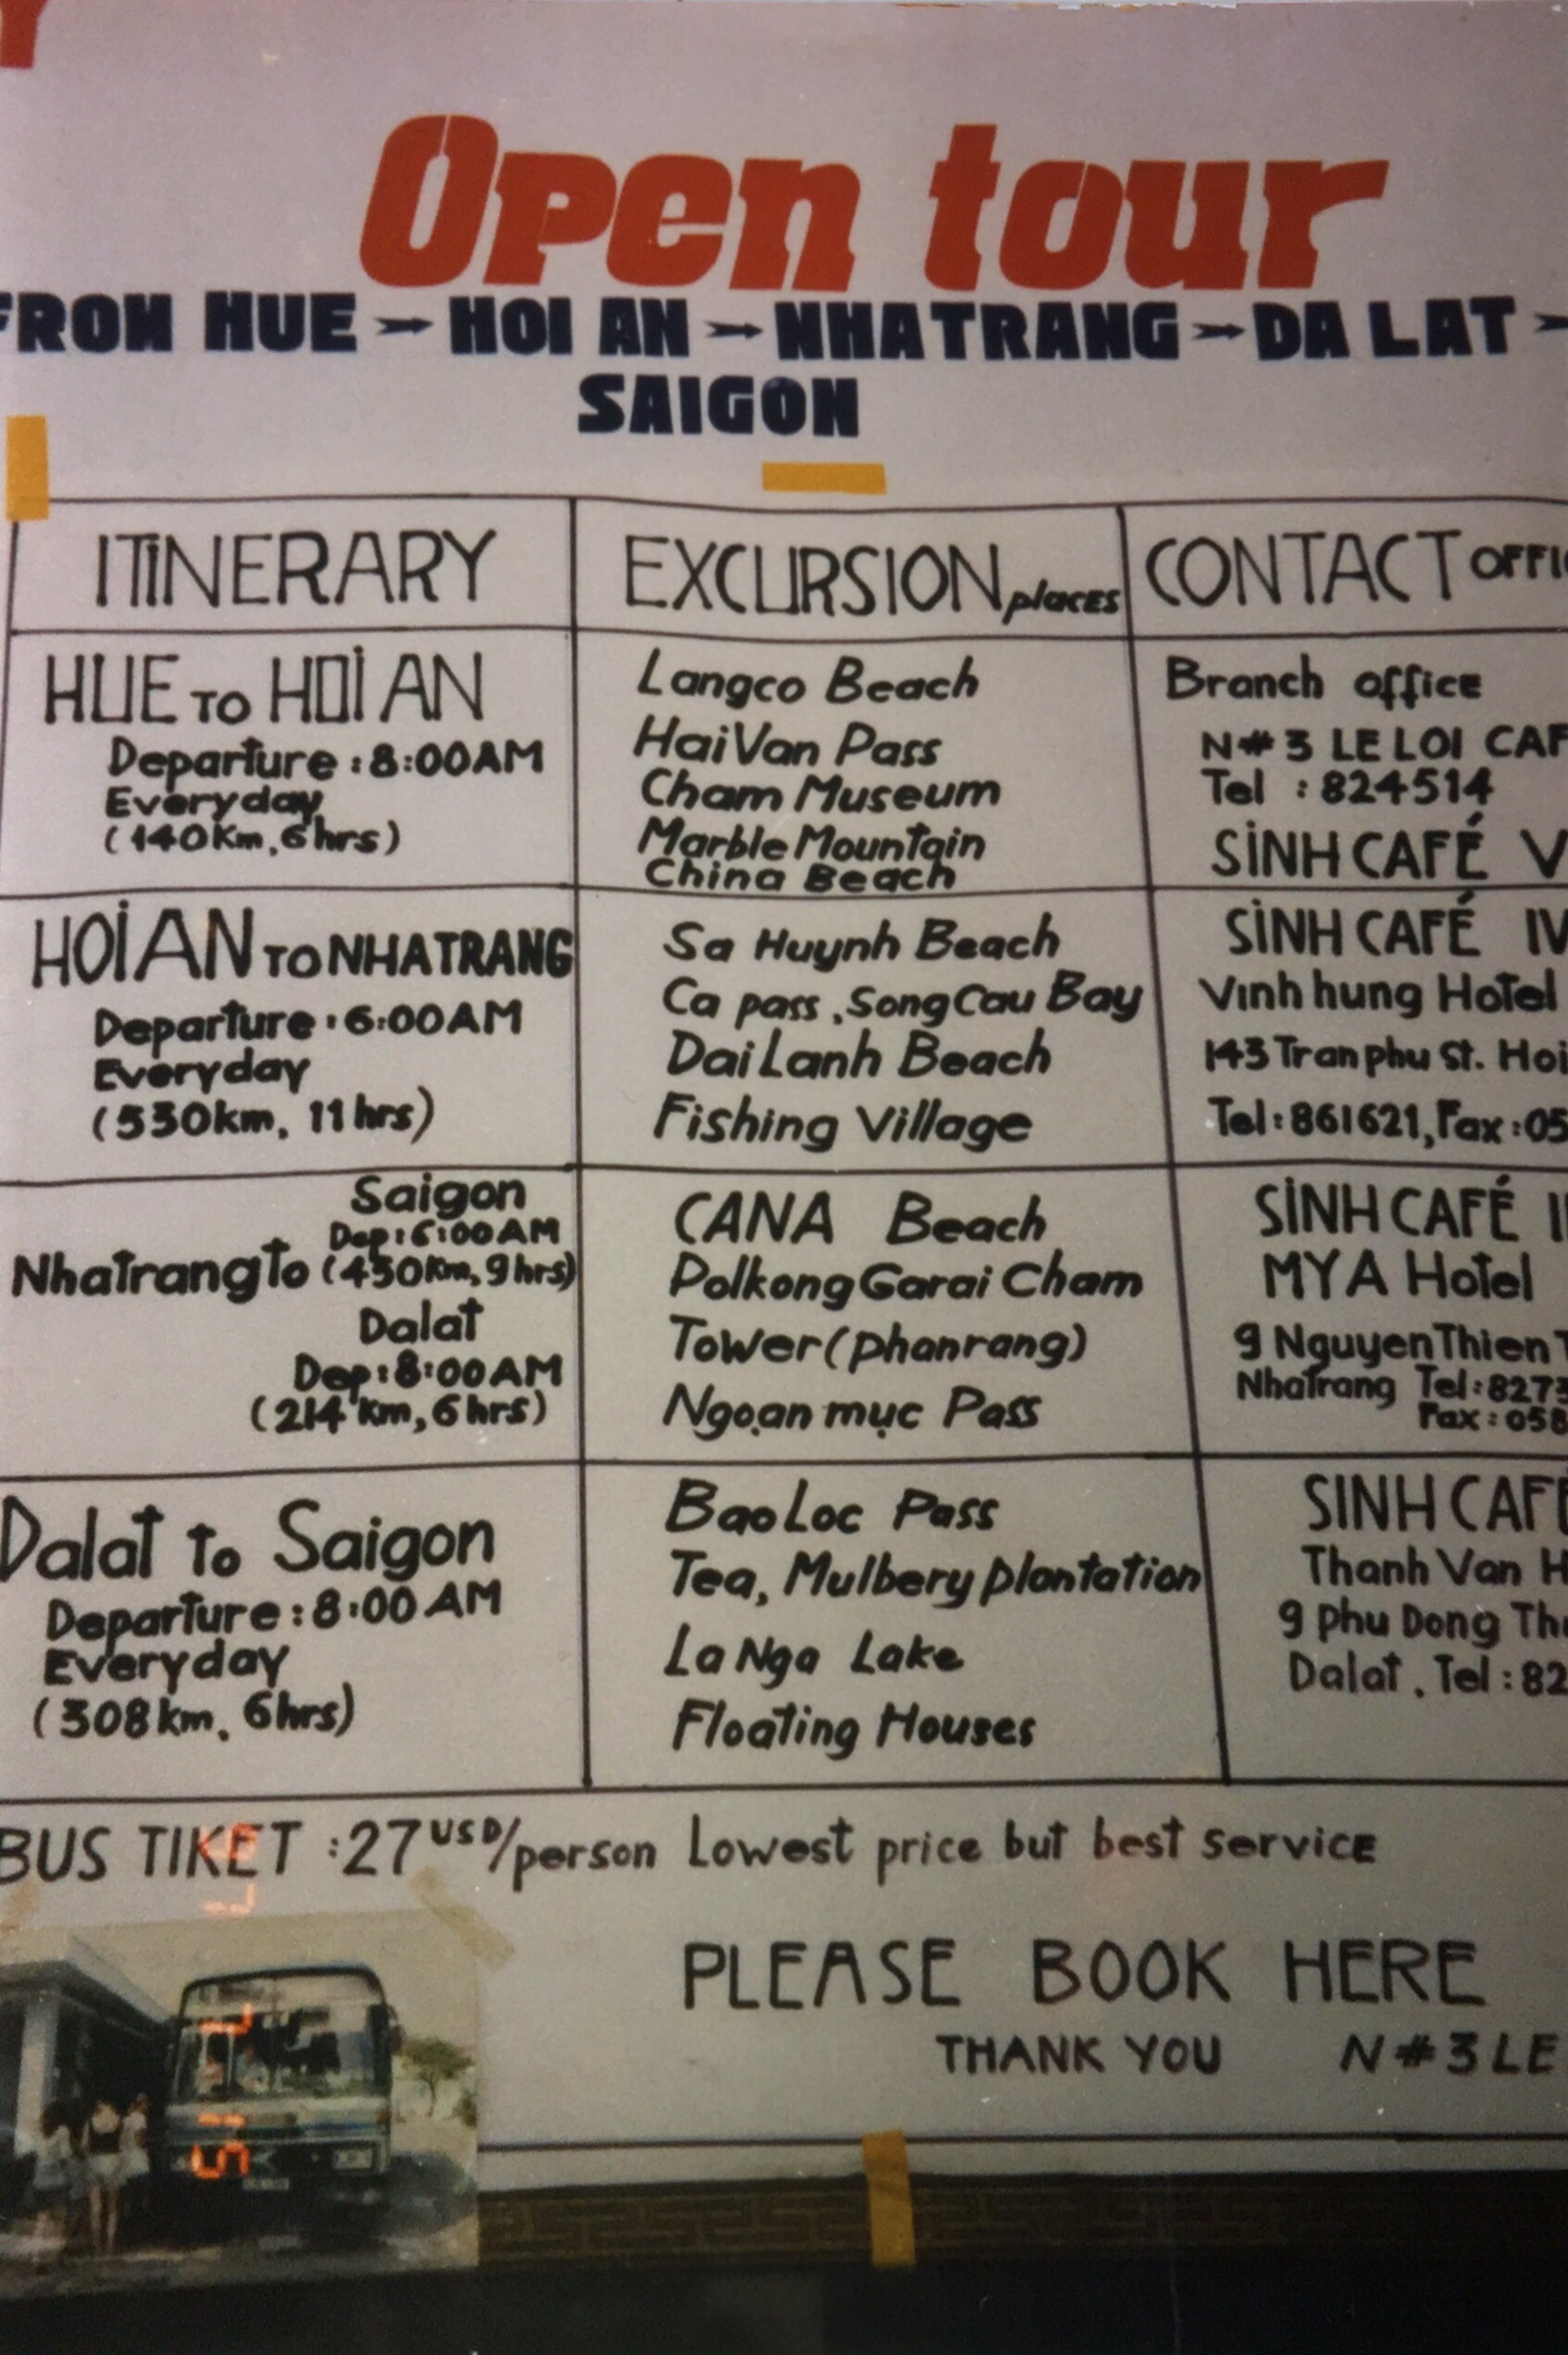 Y
Open tour
FROM HUE → HOI AN → NHATRANG → DA LAT →
SAIGON
ITINERARY
EXCURSION places
CONTACT OFFI
HUE TO HOI AN
Departure : 8:00AM
Everyday
(140Km, 6hrs)
Langco Beach
HaiVan Pass
Cham Museum
Marble Mountain
China Beach
Branch office
N# 3 LE LOI CAF
Tel : 824514
SINH CAFÉ V
HOI AN TO NHATRANG
Departure : 6:00AM
Everyday
(530km, 11hrs)
Sa Huynh Beach
Ca pass, Song Cau Bay
Dai Lanh Beach
Fishing Village
SINH CAFÉ IV
Vinh hung Hotel
143 Tran phu St. Hoi
Tel: 861621, Fax: 05
Saigon
Dep: 6:00AM
Nhatrang To (450Km, 9hrs)
Dalat
Dep: 8:00AM
(214 Km, 6hrs)
CANA Beach
Polkong Garai Cham
Tower (Phanrang)
Ngoạn mục Pass
SINH CAFÉ I
MY A Hotel
9 Nguyen Thien T
Nhatrang Tel: 8273
Fax: 058
Dalat to Saigon
Departure: 8:00 AM
Everyday
(308km, 6hrs)
Bao Loc Pass
Tea, Mulbery plantation
La Nga Lake
Floating Houses
SINH CAFÉ
Thanh Van H
9 Phu Dong Th
Dalat. Tel: 82
BUS TIKET : 27 USD/person Lowest price but best service
PLEASE BOOK HERE
THANK YOU N# 3 LE